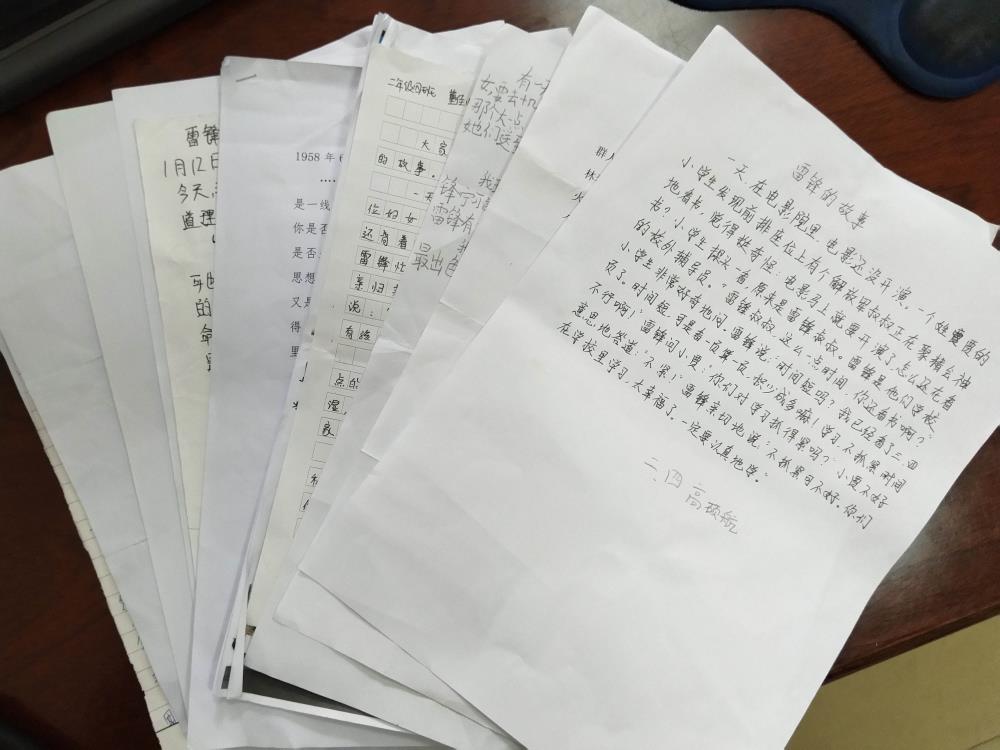 雷锋的故事
一天,在电影院里,电影还没开演,一个姓贾的
小学生发现前排座位上有个解放军叔叔正在聚精会神
地看书,觉得挺奇怪:电影马上就要开演了,怎么还在看
书?小学生探头一看,原来是雷锋叔叔。雷锋是他们学校
的校外辅导员。“雷锋叔叔,这么一点时间,你还看书啊?”
小学生非常好奇地问。雷锋说:“时间短吗?我已经看了三、四
页了。时间短,可是看一页算一页,积少成多嘛!学习不抓紧时间
不行啊!”雷锋问小贾:“你们对学习抓得紧吗?”小贾不好
意思地答道:“不紧!”雷锋亲切地说:“不抓紧可不好。你们
在学校里学习,太幸福了,一定要认真地学。”
二、四 高
群
林
火
有一
女,要去
那个大
她们
锋
雷锋有
最出色
二年级四班
大家
的故事。
一天
位妇女
还背着
雷锋忙
亲归
说:
有
点的
家
1958年6
是一线
你是否
是否
思想
又是
得
里
雷锋
1月12日
今天
道理
的
命